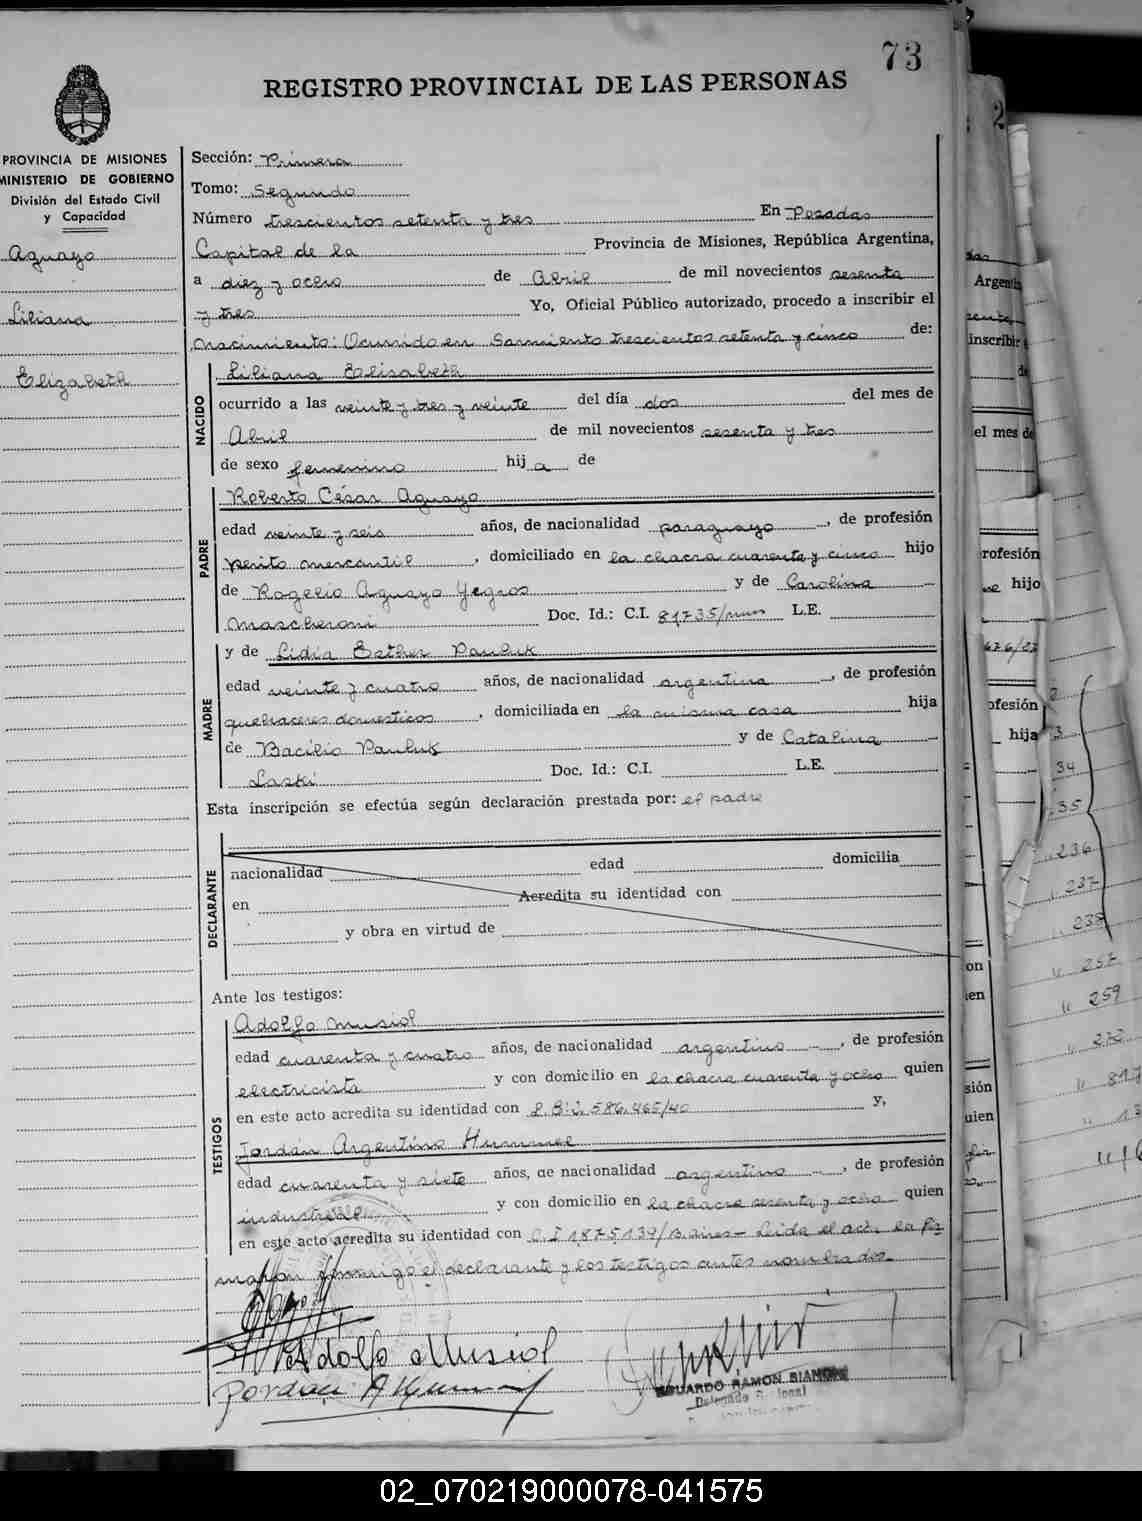 73
REGISTRO PROVINCIAL DE LAS PERSONAS
PROVINCIA DE MISIONES
MINISTERIO DE GOBIERNO
División del Estado Civil
y Capacidad
Aguayo
Liliana
Elizabeth
Sección: Primera
Tomo: Segundo
Número trescientos setenta y tres En Posadas
Capital de la Provincia de Misiones, República Argentina,
a diez y ocho de Abril de mil novecientos sesenta
y tres Yo, Oficial Público autorizado, procedo a inscribir el
nacimiento: Ocurrido en Sarmiento trescientos setenta y cinco de:
NACIDO
Liliana Elisabeth
ocurrido a las veinte y tres y veinte del día dos del mes de
Abril de mil novecientos sesenta y tres
de sexo femenino hij a de
PADRE
Roberto César Aguayo
edad veinte y seis años, de nacionalidad paraguayo, de profesión
perito mercantil, domiciliado en la chacra cuarenta y cinco hijo
de Rogelio Aguayo Yegros y de Carolina
Mascheroni Doc. Id.: C.I. 81735/mnes L.E.
MADRE
y de Lidia Esther Pauluk
edad veinte y cuatro años, de nacionalidad argentina, de profesión
quehaceres domesticos, domiciliada en la misma casa hija
de Bacilio Pauluk y de Catalina
Laski Doc. Id.: C.I. L.E.
Esta inscripción se efectúa según declaración prestada por: el padre
DECLARANTE
nacionalidad edad domicilia
en Acredita su identidad con
y obra en virtud de
Ante los testigos:
TESTIGOS
Adolfo Musiol
edad cuarenta y cuatro años, de nacionalidad argentino, de profesión
electricista y con domicilio en la chacra cuarenta y ocho quien
en este acto acredita su identidad con 586.465/40 y,
Jordán Argentino Hummel
edad cuarenta y siete años, de nacionalidad argentino, de profesión
industrial y con domicilio en la chacra sesenta y ocho quien
en este acto acredita su identidad con C.I 1875139/B.aires - Leida el acta la fir
maron conmigo el declarante y los testigos antes nombrados.
Adolfo Musiol
Jordan A Hummel
EDUARDO RAMON BIANCHI
Delegado
Argentina
inscribir
de
el mes de
rofesión
hijo
ofesión
hija
34
35
236
237
238
257
259
817
on
ien
sión
quien
02_070219000078-041575